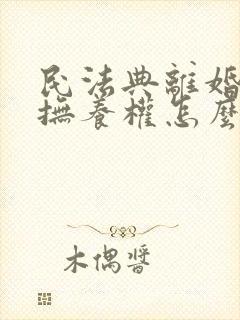 民法典離婚
撫養權怎麼
木偶醬